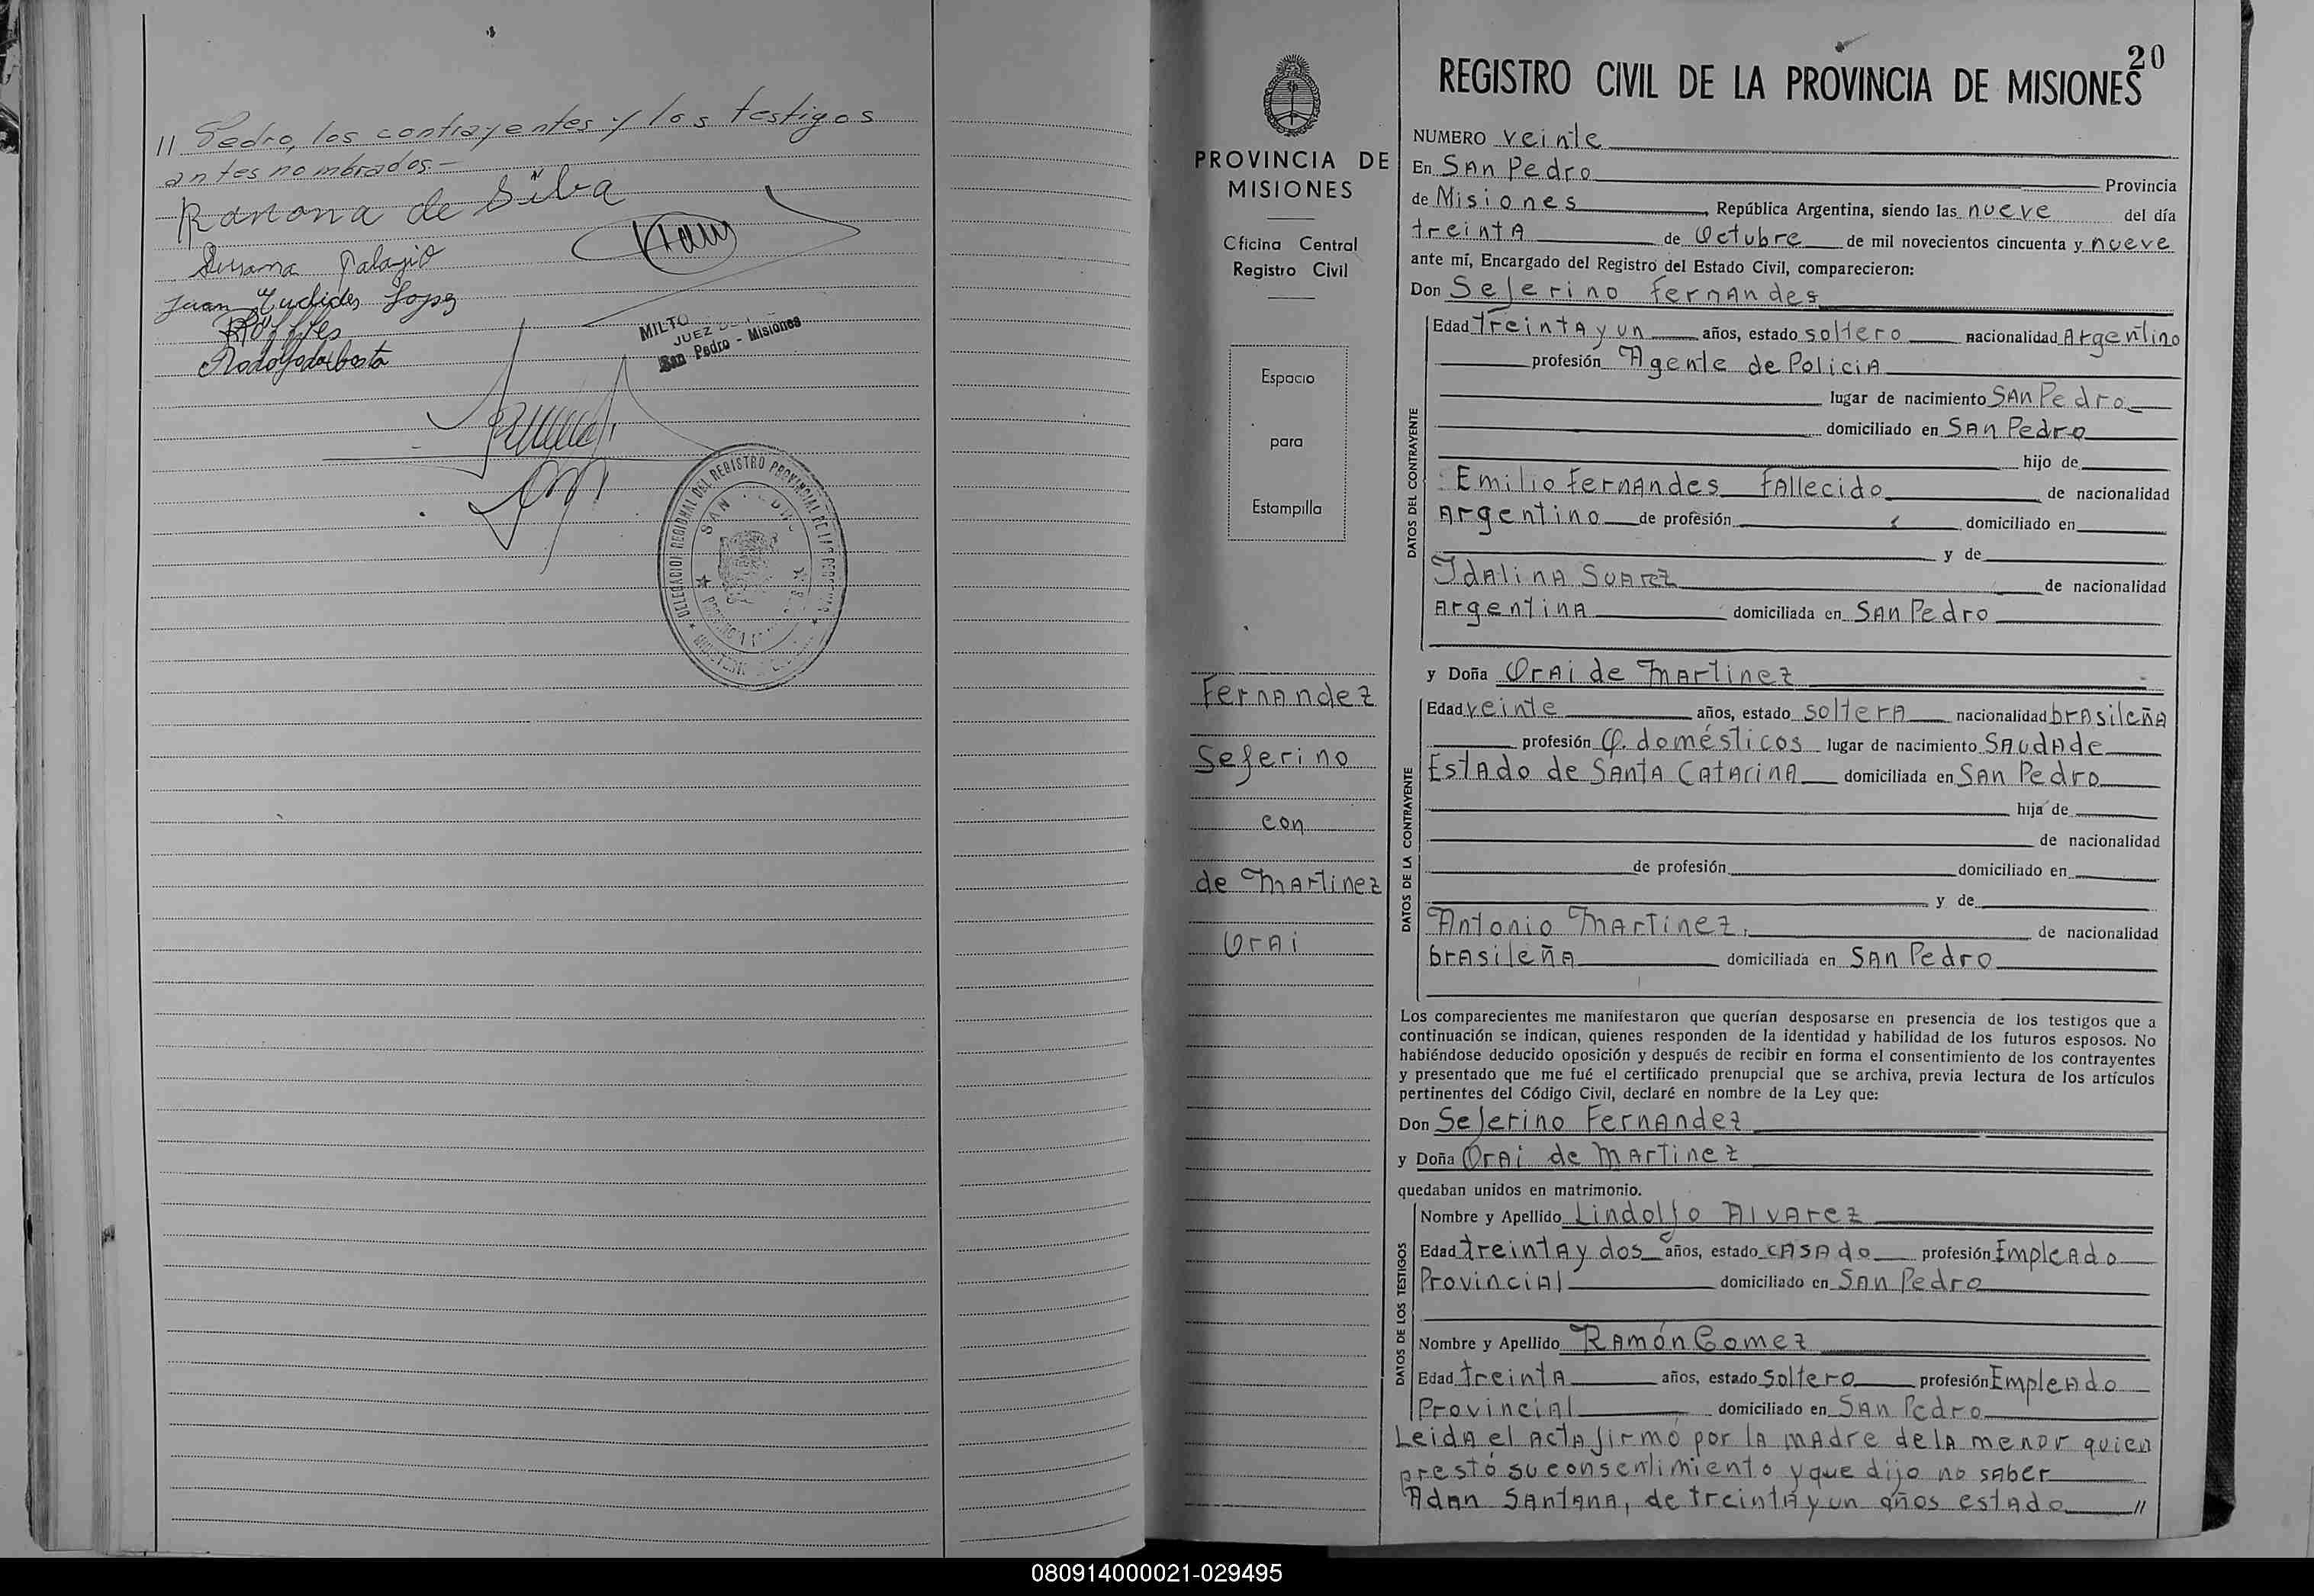 // Pedro, los contrayentes y los testigos
antes nombrados.—
Ramona de Silva
Susana Palagio
Juan Euclides Lopez
Rodolfo da Costa
MILTO
JUEZ DE
San Pedro - Misiones
DELEGACION REGIONAL DEL REGISTRO PROVINCIAL DE LAS PERSONAS
SAN PEDRO
PROVINCIA DE MISIONES
PROVINCIA DE
MISIONES
Oficina Central
Registro Civil
Espacio
para
Estampilla
Fernandez
Seferino
con
de Martinez
Orai
20
REGISTRO CIVIL DE LA PROVINCIA DE MISIONES
NUMERO veinte
En San Pedro Provincia
de Misiones, República Argentina, siendo las nueve del día
treinta de Octubre de mil novecientos cincuenta y nueve
ante mí, Encargado del Registro del Estado Civil, comparecieron:
Don Seferino Fernandes
DATOS DEL CONTRAYENTE
Edad treinta y un años, estado soltero nacionalidad Argentino
profesión Agente de Policia
lugar de nacimiento San Pedro
domiciliado en San Pedro
hijo de
Emilio Fernandes Fallecido de nacionalidad
Argentino de profesión domiciliado en
y de
Idalina Suarez de nacionalidad
Argentina domiciliada en San Pedro
y Doña Orai de Martinez
DATOS DE LA CONTRAYENTE
Edad veinte años, estado soltera nacionalidad brasileña
profesión Q. domésticos lugar de nacimiento Saudade
Estado de Santa Catarina domiciliada en San Pedro
hija de
de nacionalidad
de profesión domiciliado en
y de
Antonio Martinez. de nacionalidad
brasileña domiciliada en San Pedro
Los comparecientes me manifestaron que querían desposarse en presencia de los testigos que a
continuación se indican, quienes responden de la identidad y habilidad de los futuros esposos. No
habiéndose deducido oposición y después de recibir en forma el consentimiento de los contrayentes
y presentado que me fué el certificado prenupcial que se archiva, previa lectura de los artículos
pertinentes del Código Civil, declaré en nombre de la Ley que:
Don Seferino Fernandez
y Doña Orai de Martinez
quedaban unidos en matrimonio.
DATOS DE LOS TESTIGOS
Nombre y Apellido Lindolfo Alvarez
Edad treinta y dos años, estado casado profesión Empleado
Provincial domiciliado en San Pedro
Nombre y Apellido Ramón Gomez
Edad treinta años, estado soltero profesión Empleado
Provincial domiciliado en San Pedro
Leida el acta firmó por la madre de la menor quien
prestó su consentimiento y que dijo no saber
Adan Santana, de treinta y un años estado //
080914000021-029495